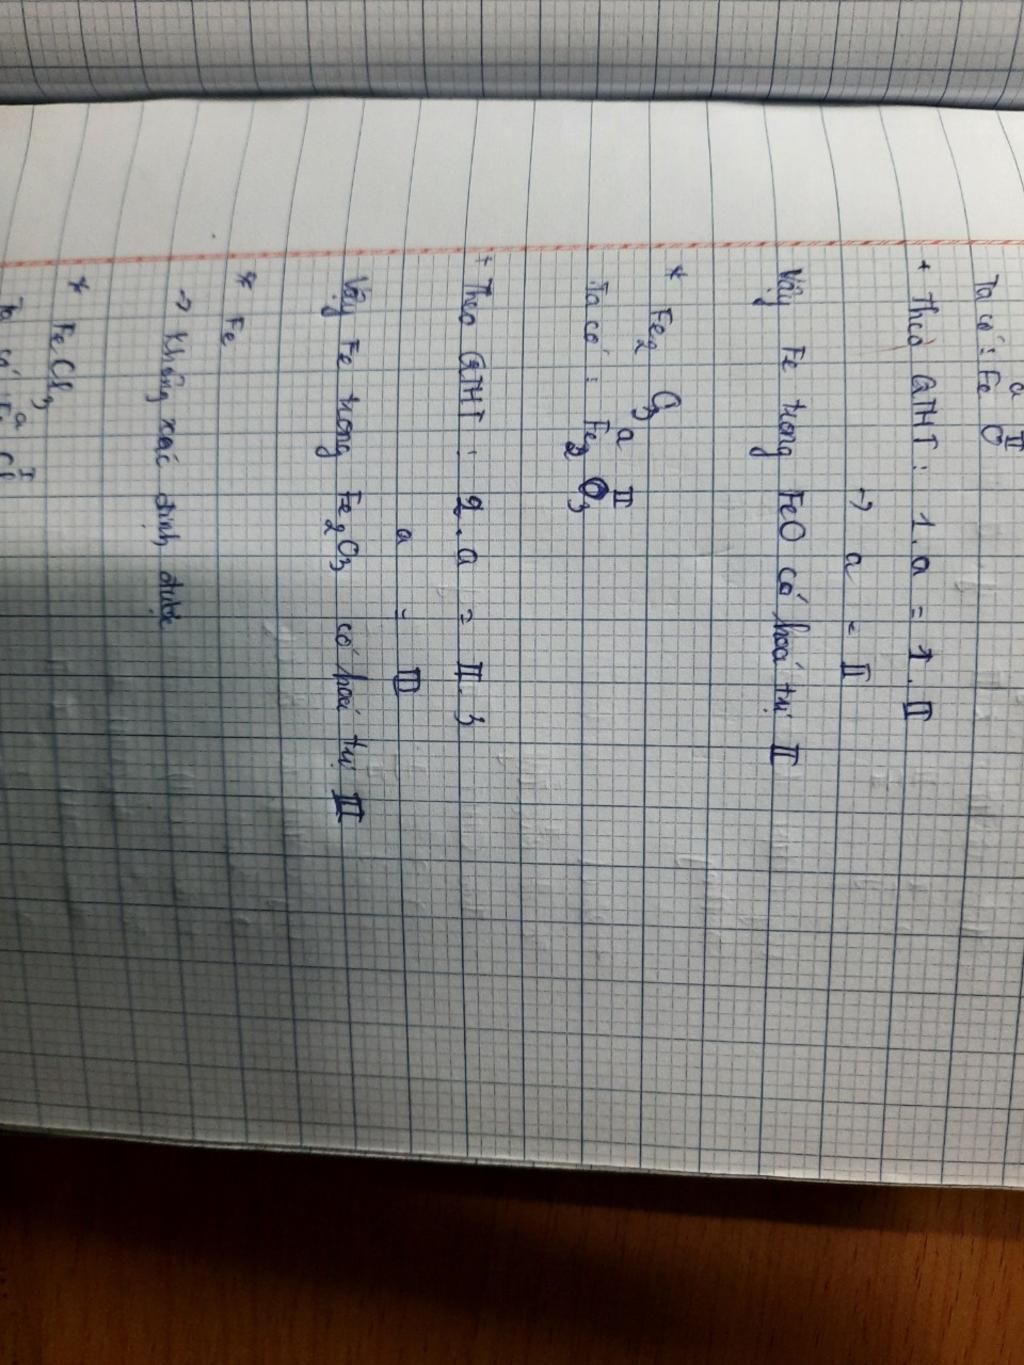 a II
Ta có : Fe O
+ Theo QTHT : 1.a = 1.II
→ a = II
Vậy Fe trong FeO có hoá trị II
* Fe₂ O₃
a II
Ta có : Fe₂ O₃
+ Theo QTHT : 2.a = II.3
a = III
Vậy Fe trong Fe₂O₃ có hoá trị III
* Fe
→ không xác định được
* FeCl₃
a I
Ta có : Fe Cl